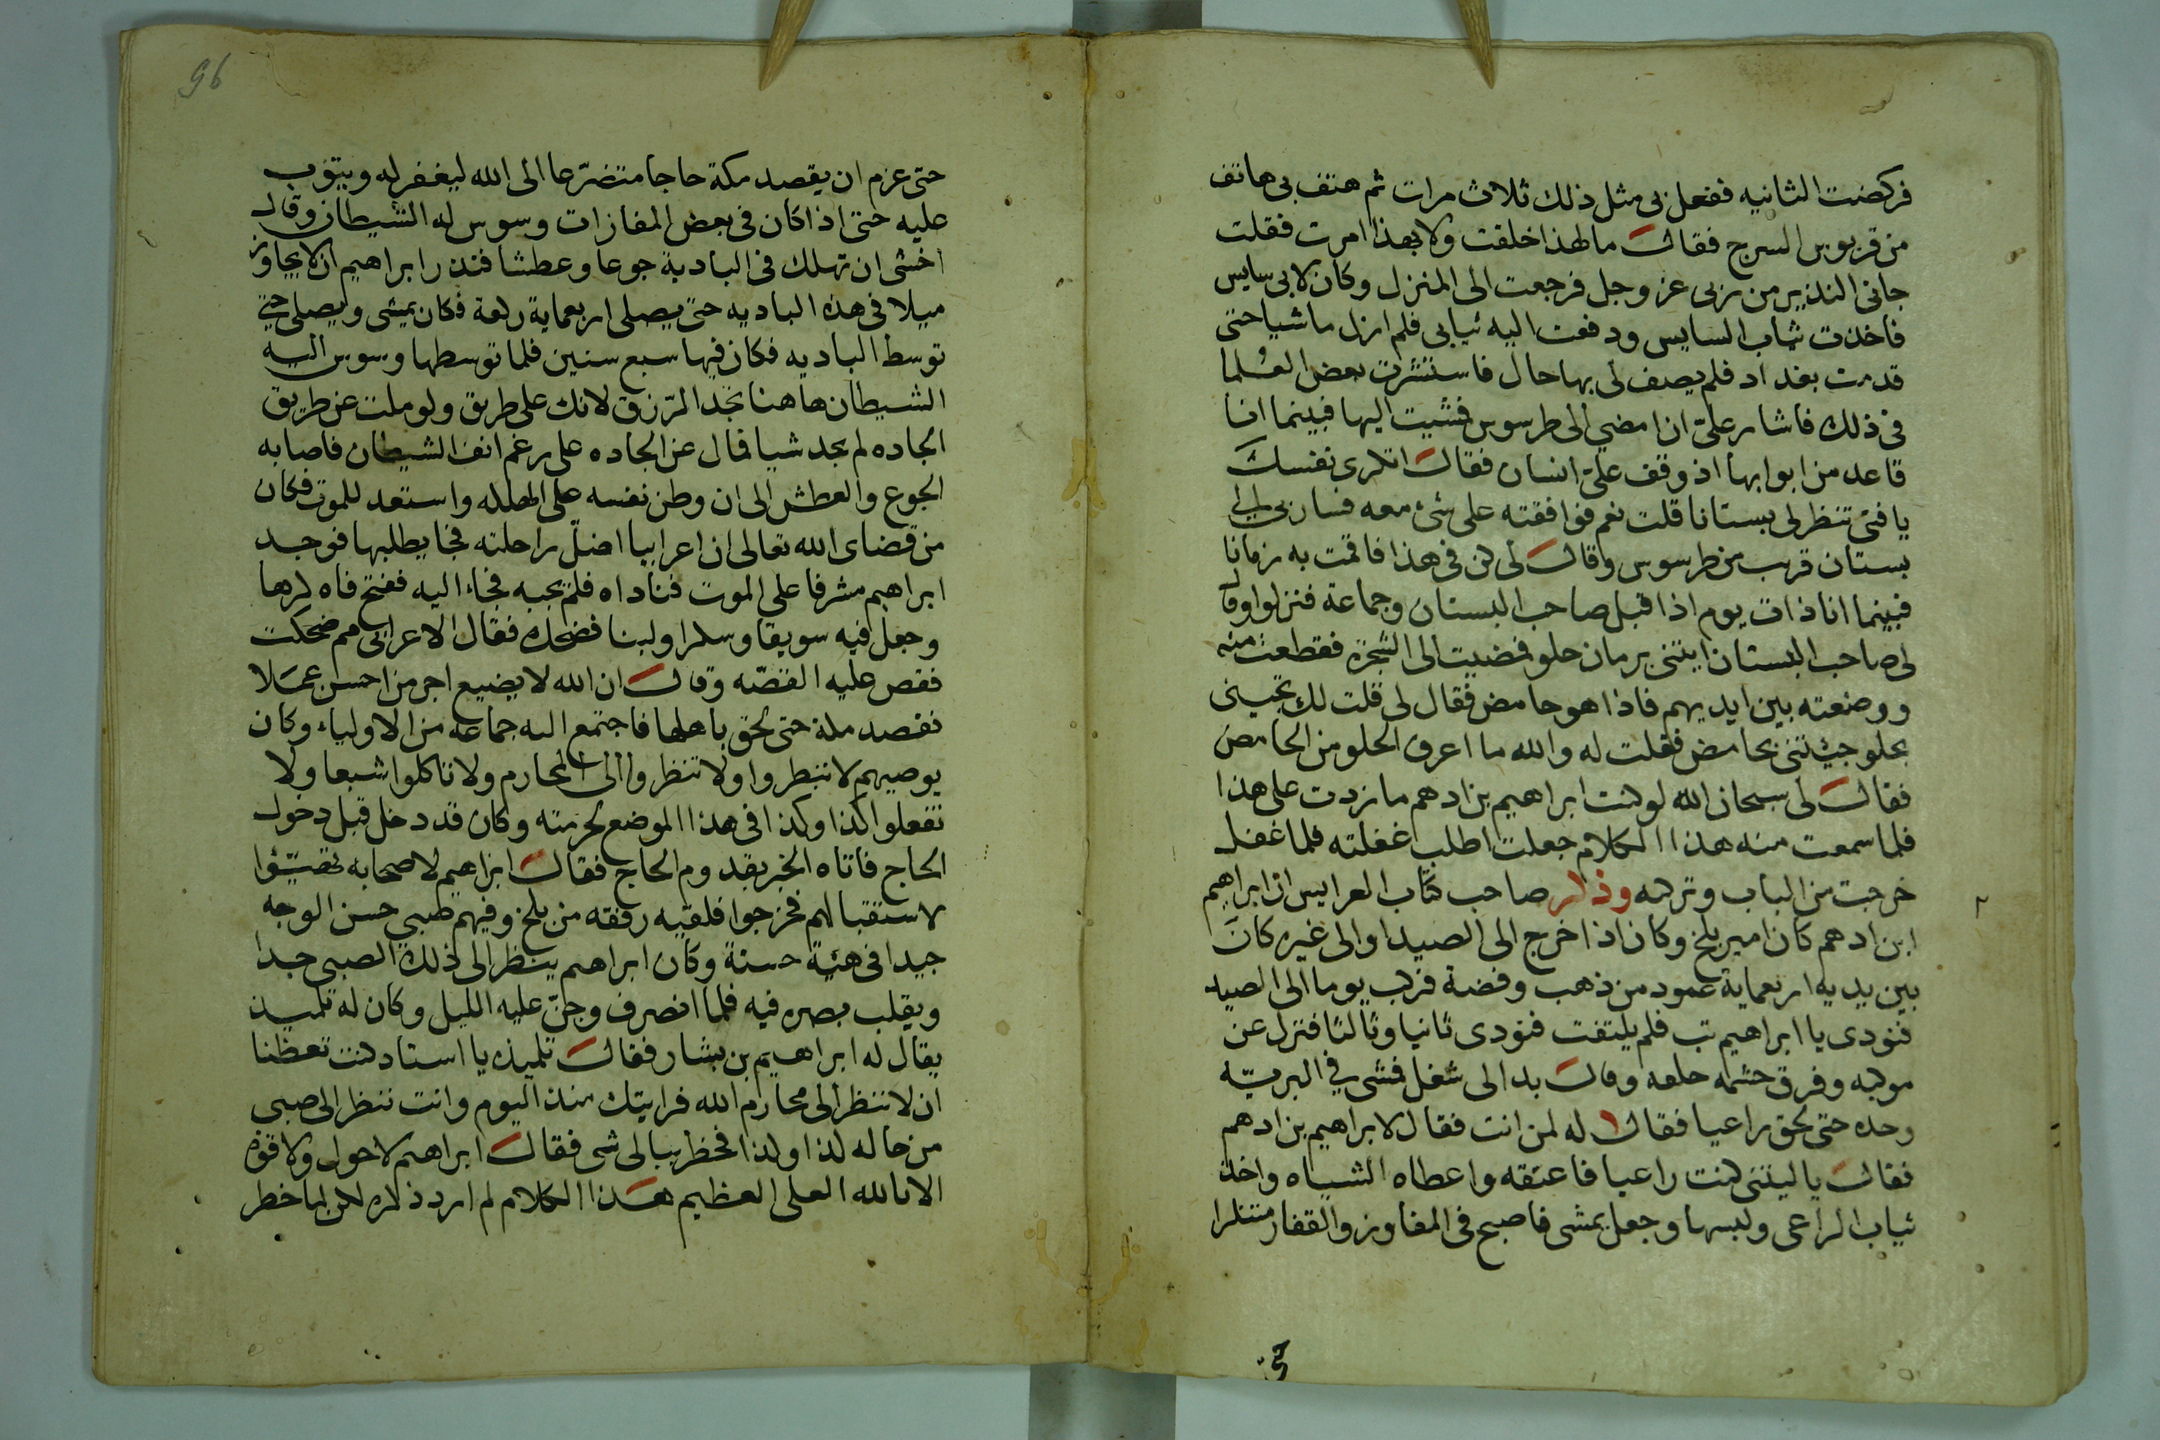 فركضت الثانيه ففعل بي مثل ذلك ثلاث مرات ثم هتف بي هاتف
من قربوس السرج فقال ما لهذا خلقت ولا بهذا امرت فقلت
جاني النذير من ربي عز وجل فرجعت الى المنزل وكان لابي سايس
فاخذت ثياب السايس ودفعت اليه ثيابي فلم ازل ماشيا حتى
قدمت بغداد فلم يصف لي بها حال فاستشرت بعض العلما
في ذلك فاشار علىّ ان امضي الى طرسوس فمشيت اليها فبينما انا
قاعد من ابوابها اذ وقف علىّ انسان فقال اتكرى نفسك
يا فتى تنظر لي بستانا قلت نعم فوافقته على شئ معه فسار بي الى
بستان قريب من طرسوس وقال لي كن في هذا فاقمت به زمانا
فبينما انا ذات يوم اذ اقبل صاحب البستان وجماعة فنزلوا وقال
لي صاحب البستان ايتني برمان حلو فمضيت الى الشجرة فقطعت منه
ووضعته بين ايديهم فاذا هو حامض فقال لي قلت لك تجيني
بحلو جيئتني بحامض فقلت له والله ما اعرف الحلو من الحامض
فقال لي سبحان الله لو كنت ابراهيم بن ادهم ما زدت على هذا
فلما سمعت منه هذا الكلام جعلت اطلب غفلته فلما غفل
خرجت من الباب وتركته وذكر صاحب كتاب العرايس ان ابراهيم
ابن ادهم كان امير بلخ وكان اذا خرج الى الصيد او الى غيره كان
بين يديه اربعماية عمود من ذهب وفضة فركب يوما الى الصيد
فنودى يا ابراهيم تب فلم يلتفت فنودى ثانيا وثالثا فنزل عن
مركبه وفرق حشمه خلفه وقال بدا لى شغل فمشى في البريّه
وحده حتى لحق راعيا فقال له لمن انت فقال لابراهيم بن ادهم
فقال يا ليتني كنت راعيا فاعتقه واعطاه الشياه واخذ
ثياب الراعي ولبسها وجعل يمشي فاصبح في المفاوز والقفار متنكرا
حتى
96
حتى عزم ان يقصد مكة حاجا متضرّعا الى الله ليغفر له ويتوب
عليه حتى اذا كان في بعض المفازات وسوس له الشيطان وقال
اخشى ان تهلك في البادية جوعا وعطشا فنذر ابراهيم ان لا يجاوز
ميلا في هذه الباديه حتى يصلي اربعماية ركعة فكان يمشي ويصلي حتى
توسط الباديه فكان فيها سبع سنين فلما توسطها وسوس اليه
الشيطان هاهنا تجد الرزق لانك على طريق ولو ملت عن طريق
الجاده لم تجد شيا فمال عن الجاده على رغم انف الشيطان فاصابه
الجوع والعطش الى ان وطن نفسه على الهلكه واستعد للموت فكان
من قضاى الله تعالى ان اعرابيا اضلّ راحلته فجا يطلبها فوجد
ابراهيم مشرفا على الموت فناداه فلم يجبه فجاء اليه ففتح فاه كرها
وجعل فيه سويقا وسكرا ولبنا فضحك فقال الاعرابي مم ضحكت
فقص عليه القصّه وقال ان الله لا يضيع اجر من احسن عملا
فقصد مكة حتى لحق باهلها فاجتمع اليه جماعة من الاولياء وكان
يوصيهم لا تبطروا ولا تنظروا الى المحارم ولا تاكلوا شبعا ولا
تفعلوا كذا وكذا في هذا الموضع لحرمته وكان قد دخل قبل دخول
الحاج فاتاه الخبر بقدوم الحاج فقال ابراهيم لاصحابه تهيّئوا
لاستقبالهم فخرجوا فلقيه رفقه من بلخ وفيهم صبي حسن الوجه
جيدا في هئية حسنة وكان ابراهيم ينظر الى ذلك الصبي جدا
ويقلب بصره فيه فلما انصرف وجنّ عليه الليل وكان له تلميذ
يقال له ابراهيم بن بشار فقال تلميذه يا استاد كنت تعظنا
ان لا ننظر الى محارم الله فرايتك منذ اليوم وانت تنظر الى صبي
من حاله كذا وكذا فخطر ببالى شي فقال ابراهيم لا حول ولا قوة
الا بالله العلى العظيم هذا الكلام لم ارد ذكره لكن لما خطر